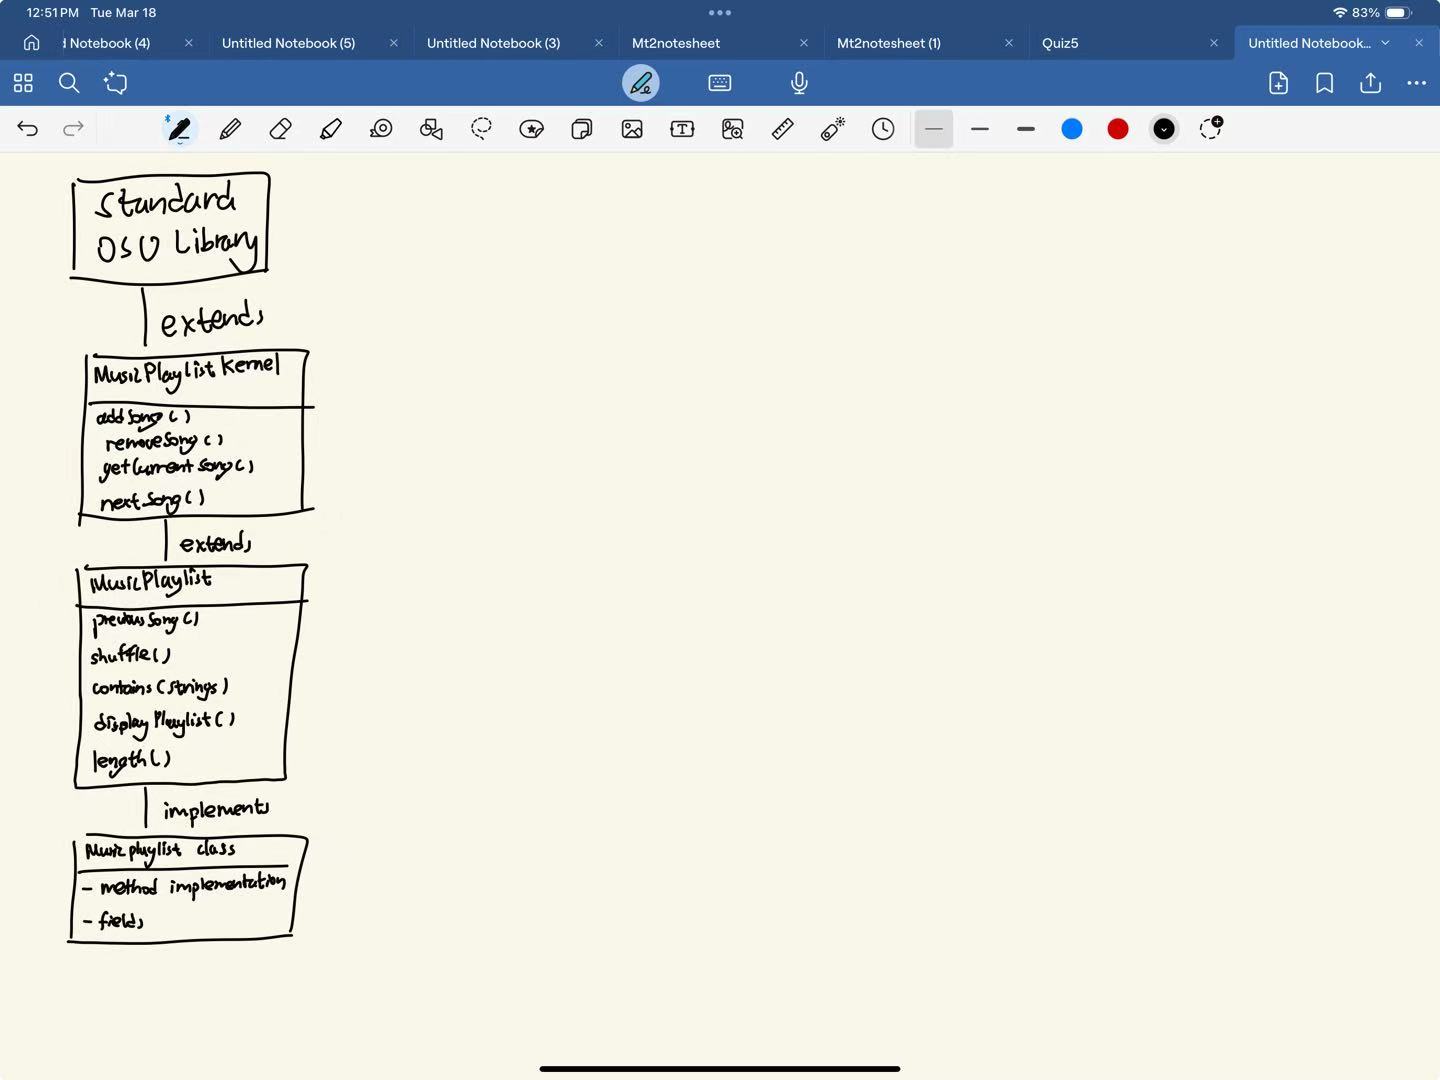 12:51 PM Tue Mar 18
83%
d Notebook (4)
Untitled Notebook (5)
Untitled Notebook (3)
Mt2notesheet
Mt2notesheet (1)
Quiz5
Untitled Notebook...
Standard
OSU Library
extends
MusicPlaylistKernel
addSong()
removeSong()
getCurrentSong()
nextSong()
extends
MusicPlaylist
previousSong()
shuffle()
contains(strings)
displayPlaylist()
length()
implements
Musicplaylist class
- method implementation
- fields